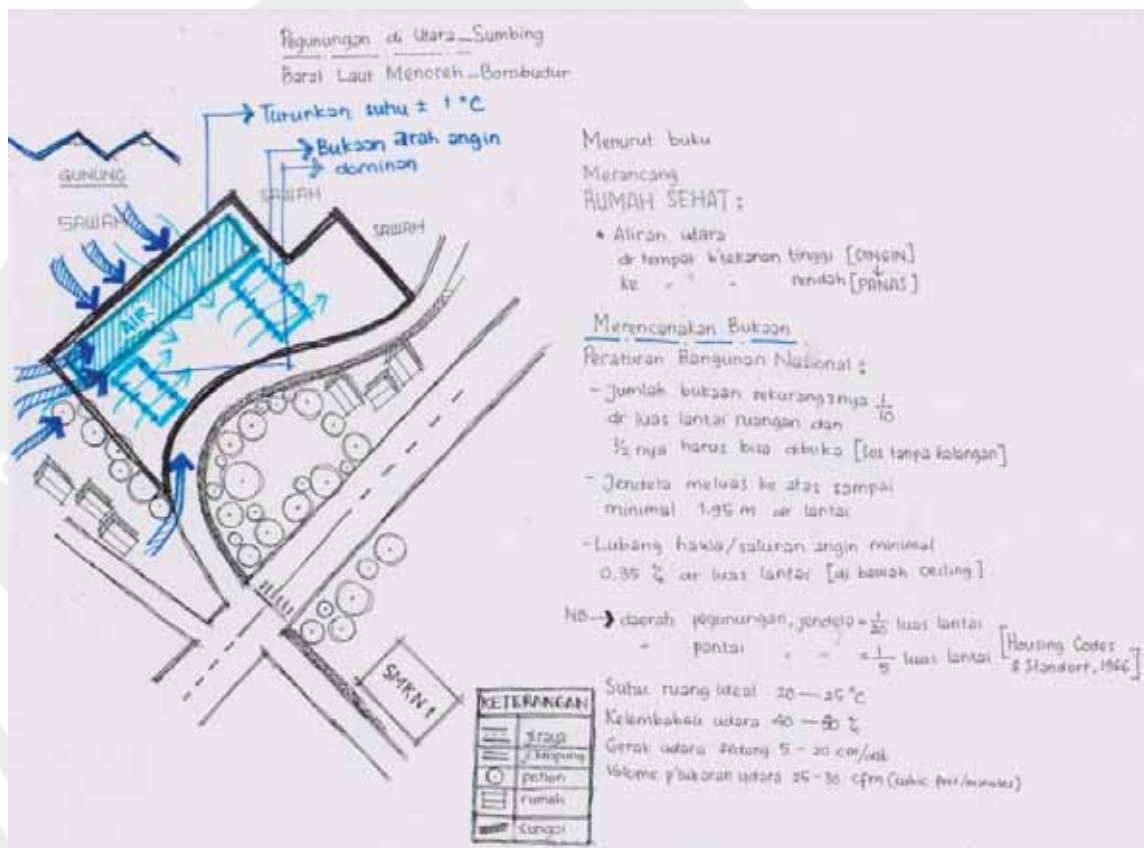 Pegunungan di Utara_Sumbing
Barat Laut Menoreh_Borobudur
Turunkan suhu ± 1 °C
Bukaan arah angin
dominan
GUNUNG
SAWAH
SAWAH
SAWAH
AIR
SMKN 1
KETERANGAN
jl.raya
jl.kampung
pohon
rumah
sungai
Menurut buku
Merancang
RUMAH SEHAT :
• Aliran udara
dr tempat b'tekanan tinggi [DINGIN]
ke " " " rendah [PANAS]
Merencanakan Bukaan
Peraturan Bangunan Nasional :
- Jumlah bukaan sekurang2nya 1/10
dr luas lantai ruangan dan
1/2 nya harus bisa dibuka [los tanpa halangan]
- Jendela meluas ke atas sampai
minimal 1.95 m dr lantai
- Lubang hawa/saluran angin minimal
0.35 % dr luas lantai [di bawah ceiling]
NB → daerah pegunungan, jendela = 1/20 luas lantai
" pantai " " = 1/5 luas lantai [Housing Codes
& Standort, 1966]
Suhu ruang ideal 20 — 25 °C
Kelembaban udara 40 — 50 %
Gerak udara sedang 5 - 20 cm/dtk
Volume p'tukaran udara 25 - 30 cfm (cubic feet/minutes)